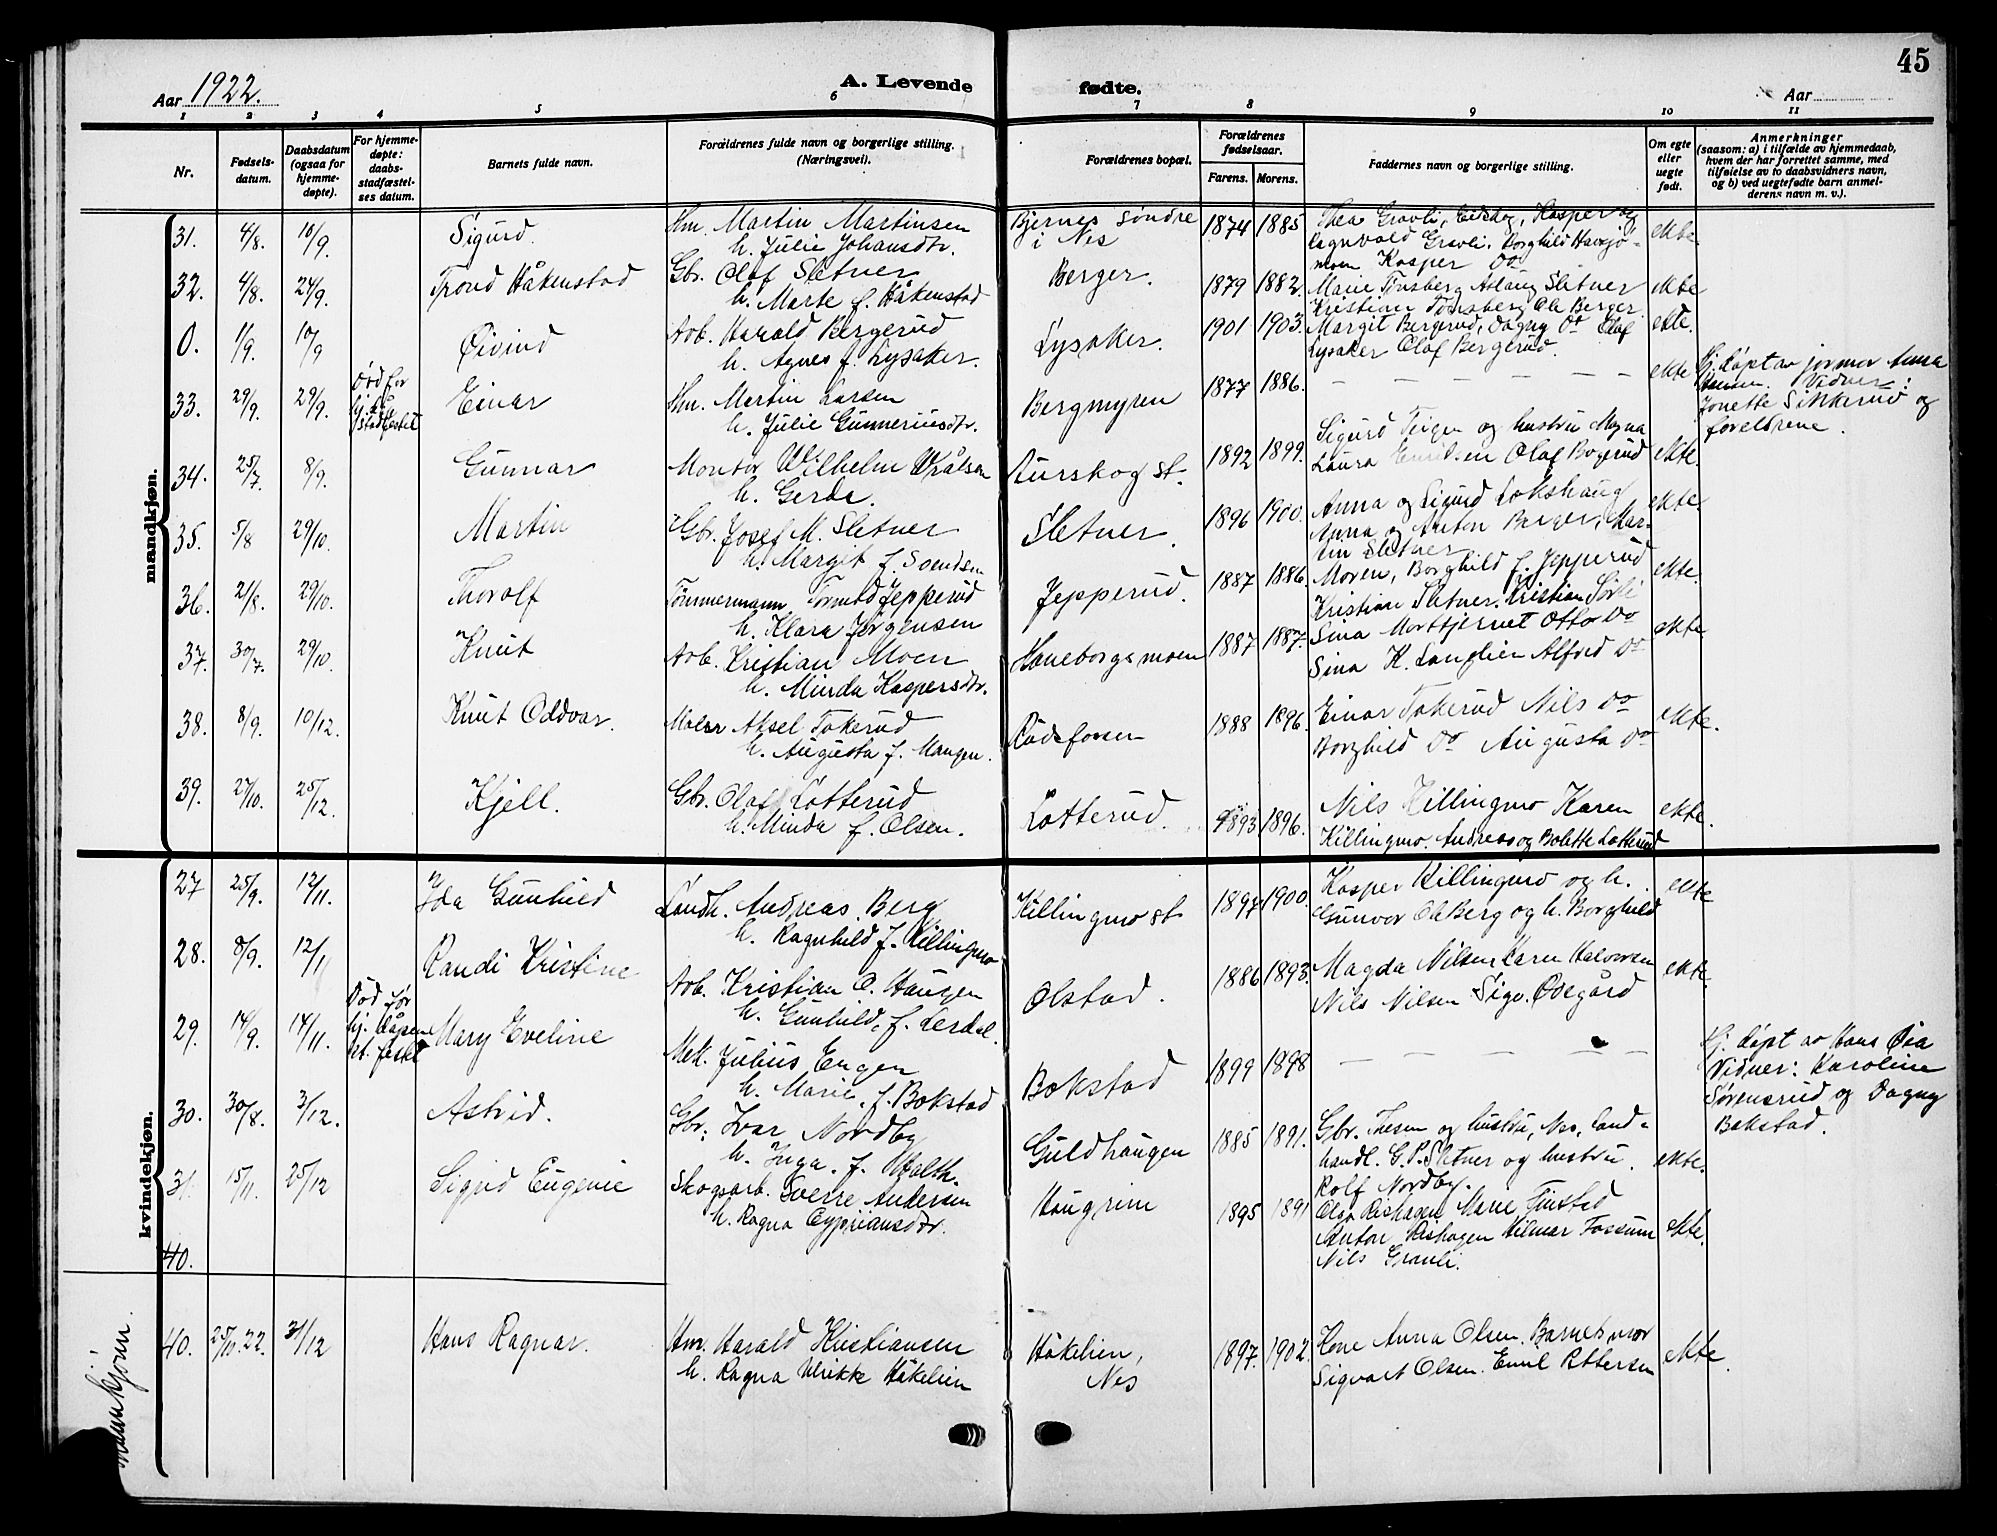 45
Aar 1922.
A. Levende fødte.
Aar
1 2 3 4 5 6 7 8 9 10 11
Nr.
Fødsels-
datum.
Daabsdatum
(ogsaa for
hjemme-
døpte).
For hjemme-
døpte:
daabs-
stadfæstel-
ses datum.
Barnets fulde navn.
Forældrenes fulde navn og borgerlige stilling.
(Næringsvei).
Forældrenes bopæl.
Forældrenes
fødselsaar.
Farens. Morens.
Faddernes navn og borgerlige stilling.
Om egte
eller
uegte
født.
Anmerkninger
(saasom: a) i tilfælde av hjemmedaab,
hvem der har forrettet samme, med
tilføielse av to daabsvidners navn,
og b) ved uegtefødte barn anmel-
derens navn m. v.).
mandkjøn.
31. 4/8. 10/9. Sigurd. Hm. Martin Martinsen
h. Julie Johansdtr.
Bjernes søndre
i Nes
1874 1885
Thea Gravli, Eidskog, Kasper og
Ragnvald Gravli, Borghild Haversjø-
moen Kasper Do
ekte
32. 4/8. 24/9. Trond Håkenstad Gbr. Olaf Sletner
h. Marte f. Håkenstad
Berger. 1879 1882.
Marie Tonsberg Aslaug Sletner
Kristian Tonsberg Ole Berger.
ekte
0. 1/9. 10/9 Øivind Arb. Harald Bergerud
h. Agnes f. Lysaker.
Lysaker. 1901 1903.
Margit Bergerud, Dagny Do Olaf
Lysaker Olaf Bergerud.
ekte.
33. 29/9. 29/9. Død før
Einar Hm. Martin Larsen
h. Julie Gunneriusdtr.
Bergmyren 1877 1886. — — — — — — ekte
Hj. døpt av jormor Anna
Vidner:
Jonette Sikkerud og
foreldrene.
34. 25/7. 8/9. Gunnar Montør Wilhelm Wrålsen
h. Gerda.
Aurskog st. 1892 1899.
Sigurd Teigen og hustru Magna
Laura Emilsen Olaf Bogerud
ekte.
35. 5/8 29/10. Martin Gbr. Josef M. Sletner
h. Margit f. Svendsen
Sletner. 1896 1900.
Anna og Sigurd Lokshaug
Anna og Anton Berger, Mar-
tin Sletner
ekte.
36. 21/8. 29/10. Thorolf Tømmermann Tormod Jepperud
h. Klara Jørgensen
Jepperud. 1887 1886.
Moren, Borghild f. Jepperud
Kristian Sletner. Kristian Sørli
ekte.
37. 30/7. 29/10. Knut Arb. Kristian Moen
h. Minda Kaspersdtr.
Haneborgsmoen 1887 1887.
Sina Morttjernet Otto Do
Sina K. Langlien Alfred Do
ekte
38. 8/9. 10/12. Knut Oddvar. Maler Aksel Takerud
h. Augusta f. Mangen.
Rådsfossen 1888 1896.
Einar Takerud Nils Do
Borghild Do Augusta Do
ekte.
39. 27/10. 25/12. Kjell. Gbr. Olaf Lotterud
h. Minda f. Olsen.
Lotterud. 1893 1896.
Nils Killingmo Karen
Killingmo. Andreas og Bolette Lotterud
ekte.
kvindekjøn.
27 25/9. 12/11. Ida Gunhild Landh. Andreas Berg
h. Ragnhild f. Killingmo
Killingmo st 1897 1900.
Kasper Killingmo og h.
Gunvor Ole Berg og h. Borghild
ekte
28. 8/9. 12/11 Randi Kristine Arb. Kristian O. Haugen
h. Gunhild, f. Lerdal.
Olstad. 1886 1893.
Magda Nilsen Karen Halvorsen
Nils Nilsen Sigv. Ødegård
ekte.
29. 14/9. 14/11. Død før
hj. dåpen
st. festet
Mary Eveline Mek. Julius Engen
h. Marie, f. Bokstad
Bokstad 1899 1898 — — — — — —
Hj. døpt av Hans Øia
Vidner: Karoline
Sørensrud og Dagny
Bokstad.
30. 30/8. 3/12. Astrid. Gbr. Ivar Nordby
h. Inga. f. Walth.
Guldhaugen 1885 1891.
Gbr. Thesen og hustru, Nes, land-
handl. G. P. Sletner og hustru.
Rolf Nordby.
ekte.
31. 15/11. 25/12 Sigrid Eugenie Skogsarb. Sverre Andersen
h. Ragna Cypriansdtr.
Haugrim 1895 1891
Olga Rishagen Marie Finstad
Anton Rishagen Hilmar Fossum
Nils Gravli.
ekte.
40.
mannkjønn.
40. 25/10.22. 31/12 Hans Ragnar. Hm. Harald Kristiansen
h. Ragna Ulrikke Håkelien
Håkelien,
Nes
1897. 1902.
Kone Anna Olsen. Barnets mor
Sigvart Olsen. Emil Pettersen
ekte.